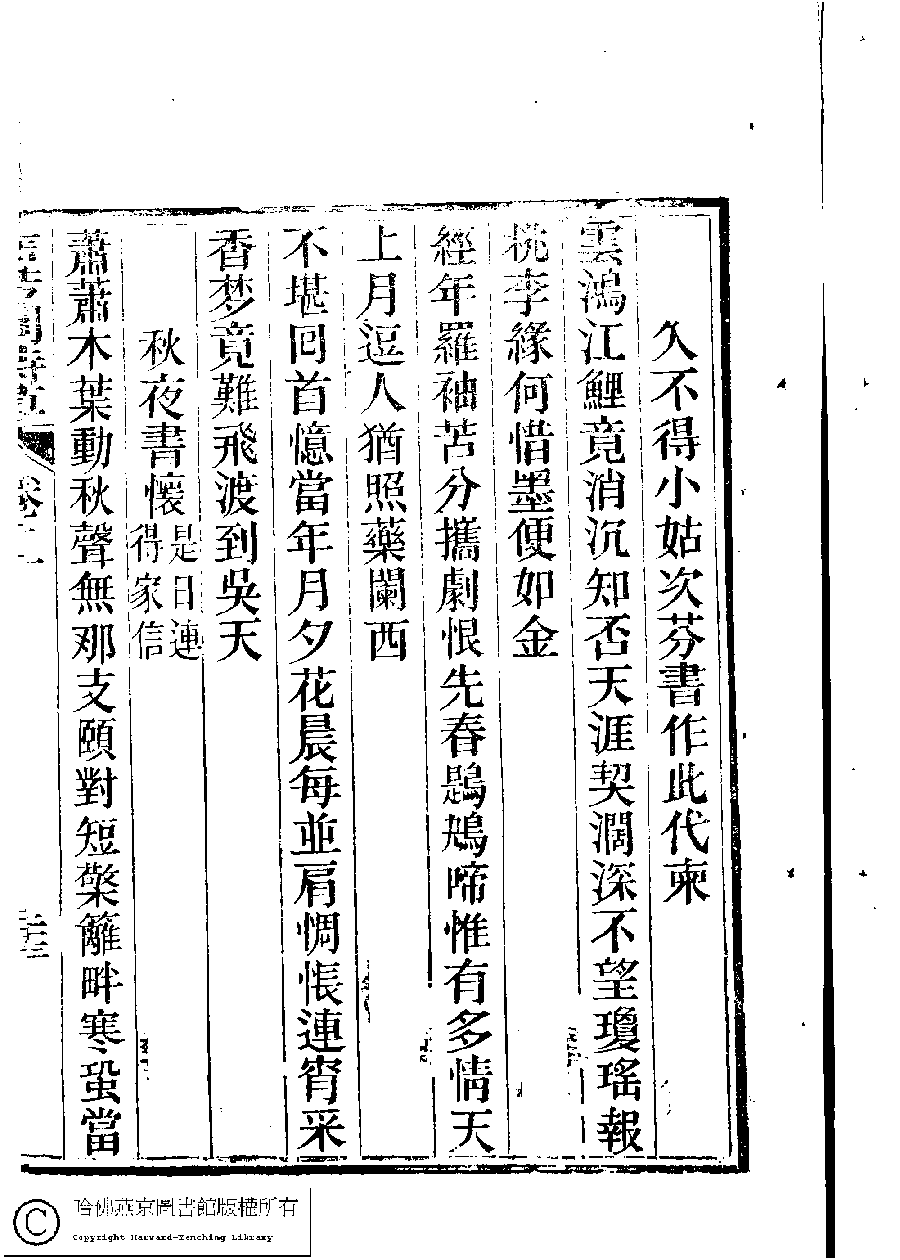 久不得小姑次芬書作此代柬
雲鴻江鯉竟消沉知否天涯契濶深不望瓊瑤報
桃李緣何惜墨便如金
經年羅袖苦分攜劇恨先春鶗鴂啼惟有多情天
上月逗人猶照藥闌西
不堪回首憶當年月夕花晨每並肩惆悵連宵采
香梦竟難飛渡到吳天
秋夜書懷
是日連
得家信
蕭蕭木葉動秋聲無那支頤對短檠籬畔寒蛩當
卷二
哈佛燕京圖書館版權所有
Copyright Harvard-Yenching Library